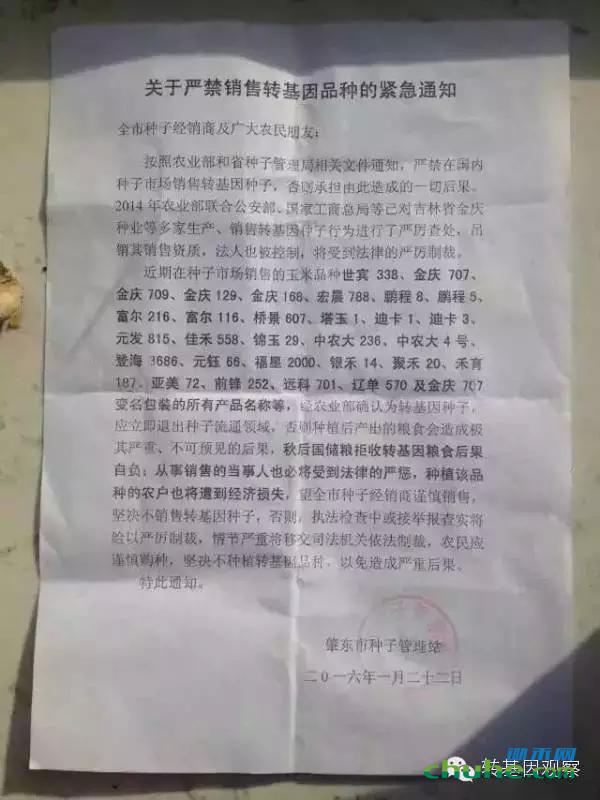 关于严禁销售转基因品种的紧急通知
全市种子经销商及广大农民朋友：
按照农业部和省种子管理局相关文件通知，严禁在国内
种子市场销售转基因种子，否则承担由此造成的一切后果。
2014年农业部联合公安部、国家工商总局等已对吉林省金庆
种业等多家生产、销售转基因种子行为进行了严厉查处，吊
销其销售资质，法人也被控制，将受到法律的严厉制裁。
近期在种子市场销售的玉米品种世宾 338、金庆 707、
金庆 709、金庆 129、金庆 168、宏晨 788、鹏程 8、鹏程 5、
富尔 216、富尔 116、桥景 607、塔玉 1、迪卡 1、迪卡 3、
元发 815、佳禾 558、锦玉 29、中农大 236、中农大 4 号、
登海 3686、元钰 66、福星 2000、银禾 14、聚禾 20、禾育
187、亚美 72、前锋 252、远科 701、辽单 570 及金庆 707
变名包装的所有产品名称等，经农业部确认为转基因种子，
应立即退出种子流通领域，否则种植后产出的粮食会造成极
其严重、不可预见的后果，秋后国储粮拒收转基因粮食后果
自负；从事销售的当事人也必将受到法律的严惩，种植该品
种的农户也将遭到经济损失，望全市种子经销商谨慎销售，
坚决不销售转基因种子，否则，执法检查中或接举报查实将
给以严厉制裁，情节严重将移交司法机关依法制裁，农民应
谨慎购种，坚决不种植转基因品种，以免造成严重后果。
特此通知。
肇东市种子管理站
二0一六年一月二十二日
转基因观察